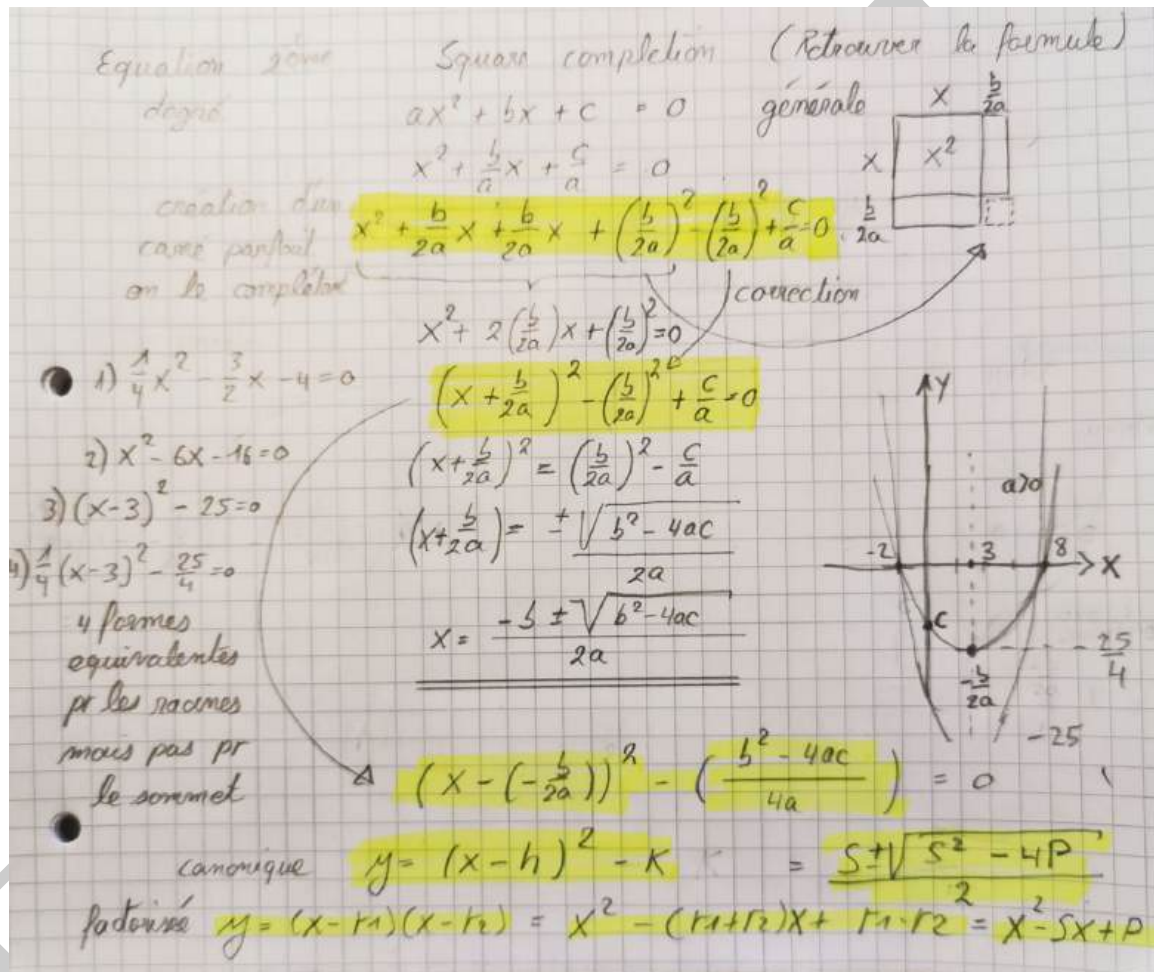 Equation 2ème Square completion (Retrouver la formule)
degré ax² + bx + c = 0 générale
x² + b/a x + c/a = 0
création d'un
carré parfait
on le complète
x² + b/2a x + b/2a x + (b/2a)² - (b/2a)² + c/a = 0
correction
x² + 2(b/2a)x + (b/2a)² = 0
(x + b/2a)² - (b/2a)² + c/a = 0
(x + b/2a)² = (b/2a)² - c/a
(x + b/2a) = ± √(b² - 4ac) / 2a
x = -b ± √(b² - 4ac) / 2a
x b/2a
x x²
b/2a
1) 1/4 x² - 3/2 x - 4 = 0
2) x² - 6x - 16 = 0
3) (x-3)² - 25 = 0
4) 1/4 (x-3)² - 25/4 = 0
4 formes
equivalentes
pr les racines
mais pas pr
le sommet
y
a>0
-2 3 8 x
c
-25/4
-b/2a
-25
(x - (-b/2a))² - (b² - 4ac / 4a) = 0
canonique y = (x - h)² - K = S ± √(S² - 4P) / 2
factorisé y = (x - r1)(x - r2) = x² - (r1 + r2)x + r1·r2 = x² - Sx + P